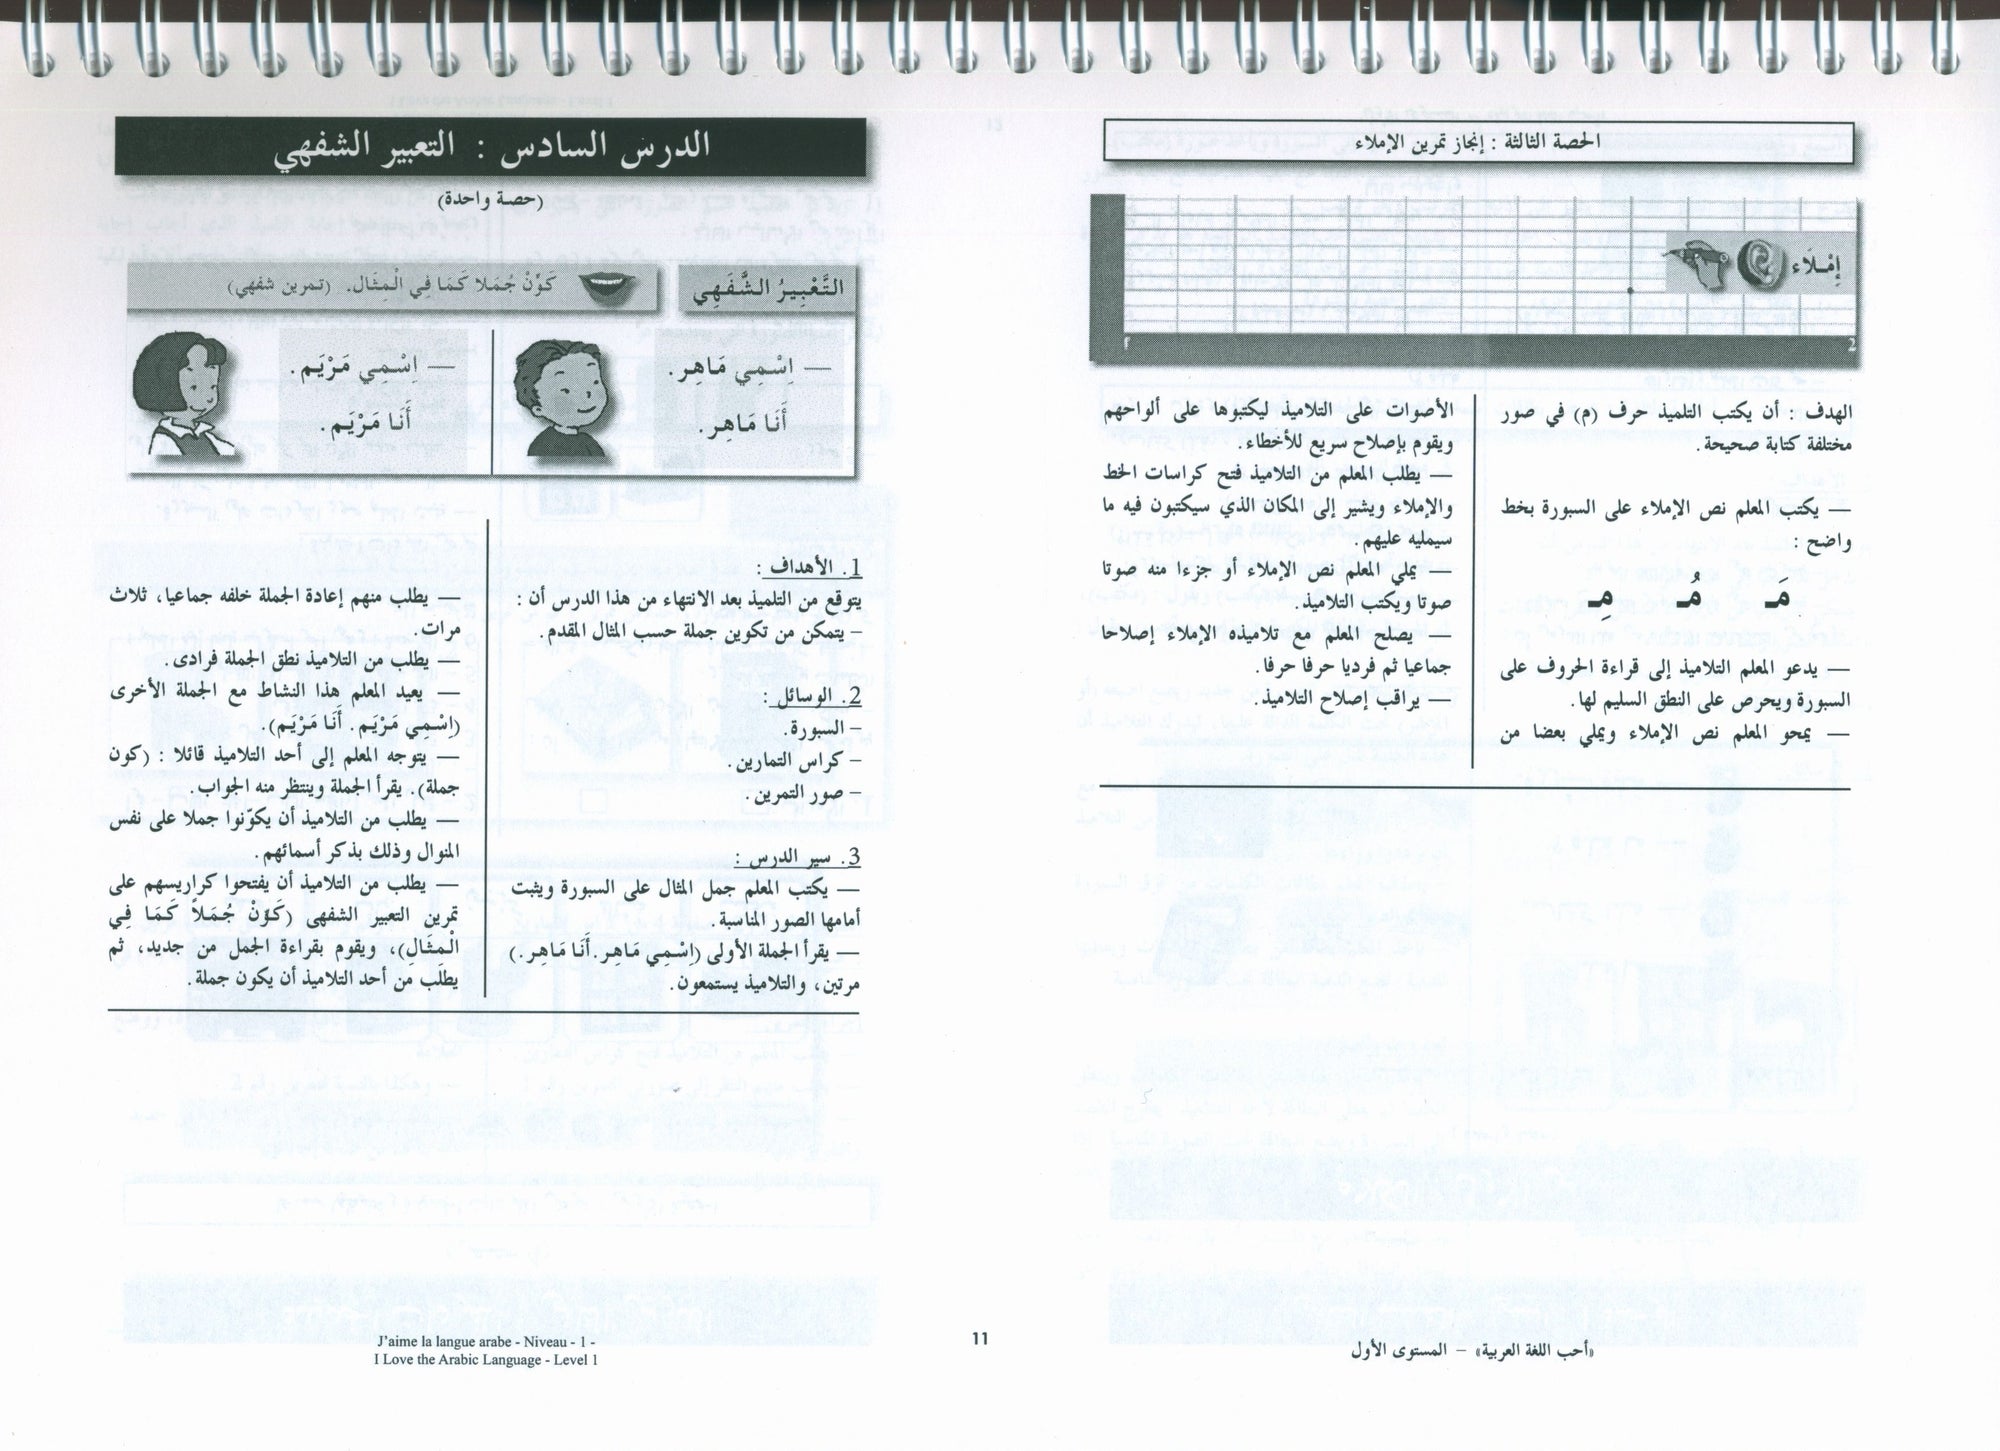 الحصة الثالثة : إنجاز تمرين الإملاء
إِمْلَاء
2
الهدف : أن يكتب التلميذ حرف (م) في صور
مختلفة كتابة صحيحة.
— يكتب المعلم نص الإملاء على السبورة بخط
واضح :
مَـ مُـ مِـ
— يدعو المعلم التلاميذ إلى قراءة الحروف على
السبورة ويحرص على النطق السليم لها.
— يمحو المعلم نص الإملاء ويملي بعضا من
الأصوات على التلاميذ ليكتبوها على ألواحهم
ويقوم بإصلاح سريع للأخطاء.
— يطلب المعلم من التلاميذ فتح كراسات الخط
والإملاء ويشير إلى المكان الذي سيكتبون فيه ما
سيمليه عليهم.
— يملي المعلم نص الإملاء أو جزءا منه صوتا
صوتا ويكتب التلاميذ.
— يصلح المعلم مع تلاميذه الإملاء إصلاحا
جماعيا ثم فرديا حرفا حرفا.
— يراقب إصلاح التلاميذ.
«أحب اللغة العربية» – المستوى الأول
11
الدرس السادس : التعبير الشفهي
(حصة واحدة)
التَّعْبِيرُ الشَّفَهِي
كَوِّنْ جُمَلا كَمَا فِي الْمِثَال. (تمرين شفهي)
— اِسْمِي مَاهِر.
أَنَا مَاهِر.
— اِسْمِي مَرْيَم.
أَنَا مَرْيَم.
1. الأهداف :
يتوقع من التلميذ بعد الانتهاء من هذا الدرس أن :
– يتمكن من تكوين جملة حسب المثال المقدم.
2. الوسائل :
– السبورة.
– كراس التمارين.
– صور التمرين.
3. سير الدرس :
— يكتب المعلم جمل المثال على السبورة ويثبت
أمامها الصور المناسبة.
— يقرأ الجملة الأولى (اِسْمِي مَاهِر. أَنَا مَاهِر.)
مرتين، والتلاميذ يستمعون.
— يطلب منهم إعادة الجملة خلفه جماعيا، ثلاث
مرات.
— يطلب من التلاميذ نطق الجملة فرادى.
— يعيد المعلم هذا النشاط مع الجملة الأخرى
(اِسْمِي مَرْيَم. أَنَا مَرْيَم).
— يتوجه المعلم إلى أحد التلاميذ قائلا : (كون
جملة). يقرأ الجملة وينتظر منه الجواب.
— يطلب من التلاميذ أن يكوّنوا جملا على نفس
المنوال وذلك بذكر أسمائهم.
— يطلب من التلاميذ أن يفتحوا كراريسهم على
تمرين التعبير الشفهى (كَوِّنْ جُمَلاً كَمَا فِي
الْمِثَالِ)، ويقوم بقراءة الجمل من جديد، ثم
يطلب من أحد التلاميذ أن يكون جملة.
J'aime la langue arabe - Niveau - 1 -
I Love the Arabic Language - Level 1